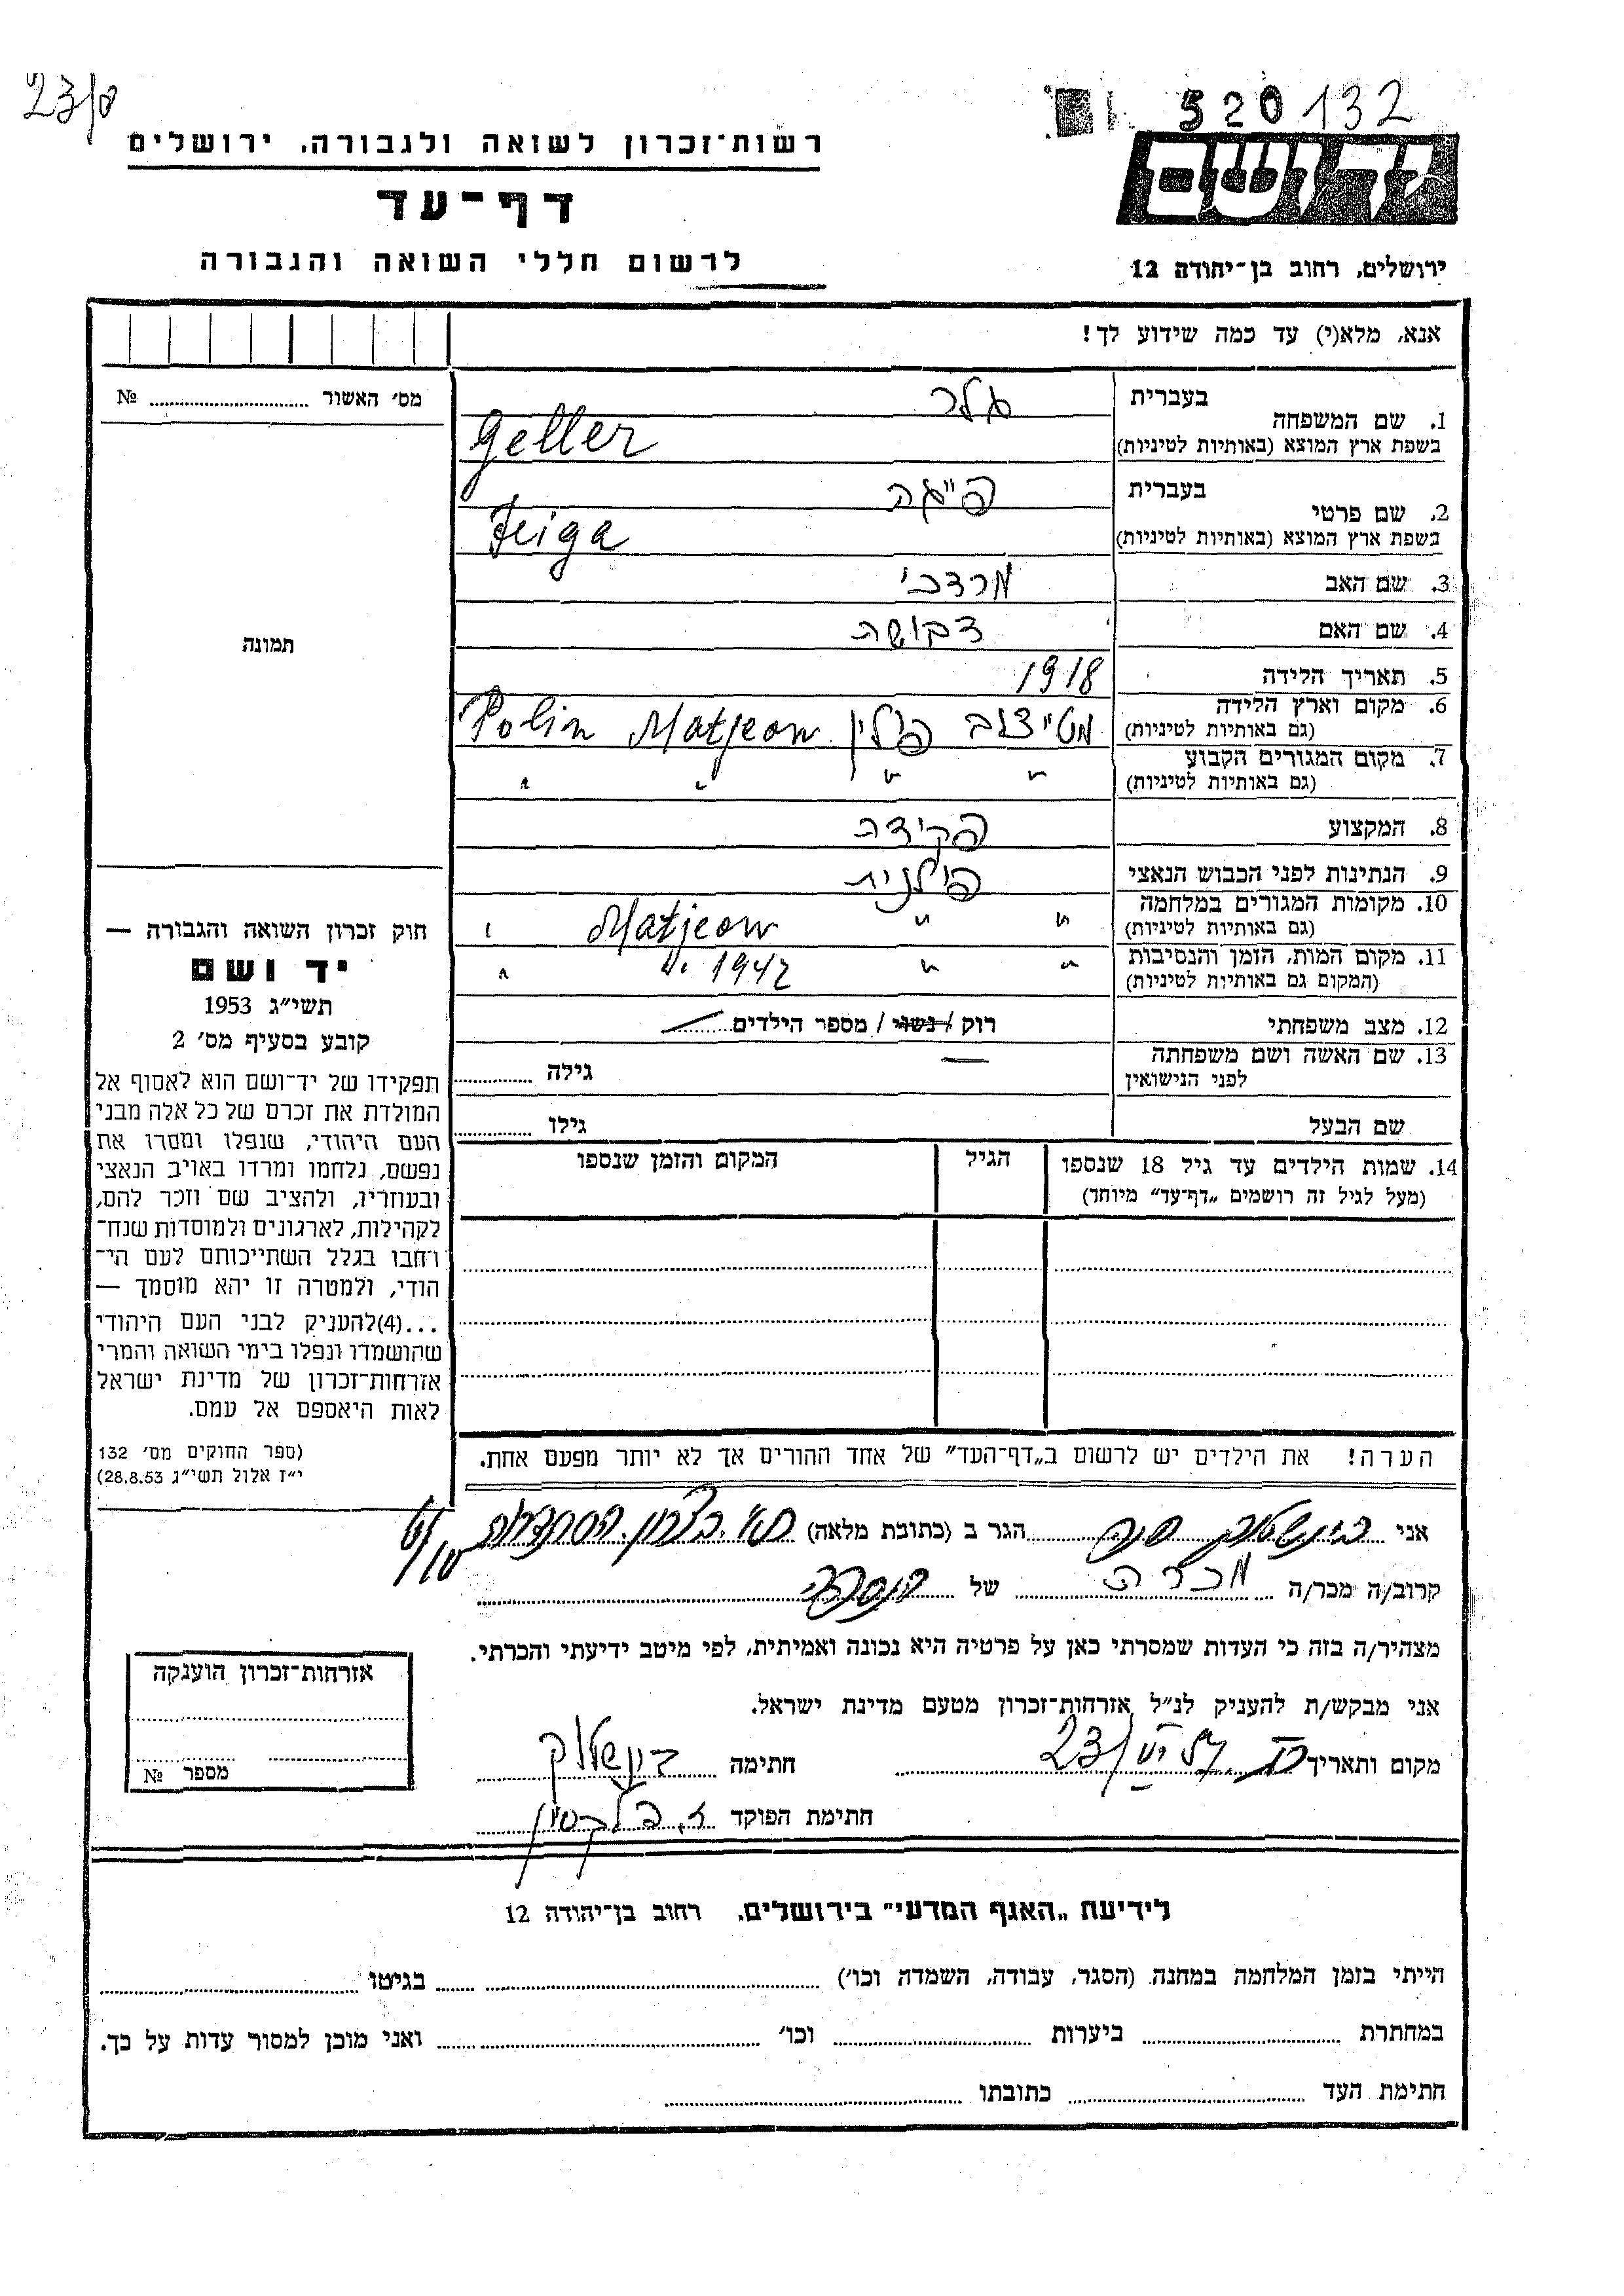 23/8
520132
יד ושם
רשות־זכרון לשואה ולגבורה, ירושלים
דף־עד
לרשום חללי השואה והגבורה
ירושלים, רחוב בן־יהודה 12
אנא, מלא(י) עד כמה שידוע לך!
מס׳ האשור № 
1. שם המשפחה בעברית גלר
בשפת ארץ המוצא (באותיות לטיניות) Geller
2. שם פרטי בעברית פייגה
בשפת ארץ המוצא (באותיות לטיניות) Feiga
3. שם האב מרדכי
4. שם האם דבושה
5. תאריך הלידה 1918
6. מקום וארץ הלידה מטייצוב פולין Matjeow Polin
(גם באותיות לטיניות)
7. מקום המגורים הקבוע " " " "
(גם באותיות לטיניות)
8. המקצוע פקידה
9. הנתינות לפני הכבוש הנאצי פולנית
10. מקומות המגורים במלחמה " " Matjeow "
(גם באותיות לטיניות)
11. מקום המות, הזמן והנסיבות " " 1942 "
(המקום גם באותיות לטיניות)
12. מצב משפחתי רוק / נשוי / מספר הילדים
13. שם האשה ושם משפחתה — גילה
לפני הנישואין
שם הבעל גילו
14. שמות הילדים עד גיל 18 שנספו הגיל המקום והזמן שנספו
(מעל לגיל זה רושמים „דף־עד״ מיוחד)
הערה! את הילדים יש לרשום ב„דף־העד״ של אחד ההורים אך לא יותר מפעם אחת.
תמונה
חוק זכרון השואה והגבורה —
יד ושם
תשי״ג 1953
קובע בסעיף מס׳ 2
תפקידו של יד־ושם הוא לאסוף אל
המולדת את זכרם של כל אלה מבני
העם היהודי, שנפלו ומסרו את
נפשם, נלחמו ומרדו באויב הנאצי
ובעוזריו, ולהציב שם וזכר להם,
לקהילות, לארגונים ולמוסדות שנח־
רחבו בגלל השתייכותם לעם הי־
הודי, ולמטרה זו יהא מוסמך —
...(4)להעניק לבני העם היהודי
שהושמדו ונפלו בימי השואה והמרי
אזרחות־זכרון של מדינת ישראל
לאות היאספם אל עמם.
(ספר החוקים מס׳ 132
י״ז אלול תשי״ג 28.8.53)
אני הגר ב (כתובת מלאה)
קרוב/ה מכר/ה מכרה של
מצהיר/ה בזה כי העדות שמסרתי כאן על פרטיה היא נכונה ואמיתית, לפי מיטב ידיעתי והכרתי.
אני מבקש/ת להעניק לנ״ל אזרחות־זכרון מטעם מדינת ישראל.
מקום ותאריך 23/ חתימה
חתימת הפוקד
אזרחות־זכרון הוענקה
מספר №
לידיעת „האגף המדעי״ בירושלים, רחוב בן־יהודה 12
הייתי בזמן המלחמה במחנה (הסגר, עבודה, השמדה וכו׳) בגיטו
במחתרת ביערות וכו׳ ואני מוכן למסור עדות על כך.
חתימת העד כתובתו